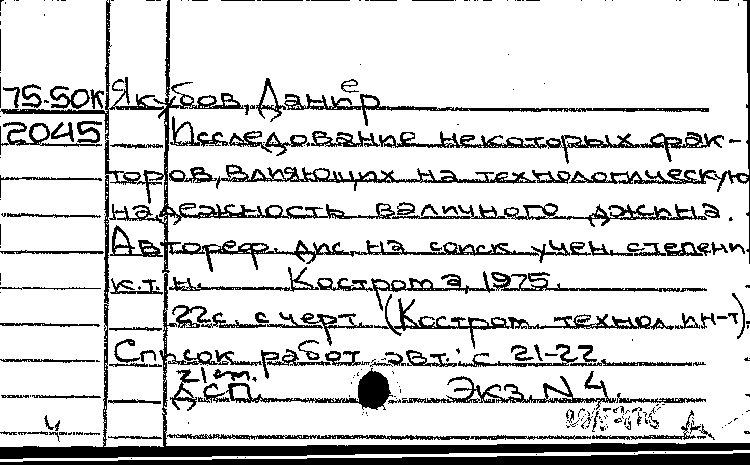 75-50к Якубов, Даниёр
2045 Исследование некоторых фак-
торов, влияющих на технологическую
надежность валичного джина.
Автореф. дис, на соиск. учен. степени
к.т.н. Кострома, 1975.
22с. с черт. (Костром. технол. ин-т).
Список работ авт.: с. 21-22.
ДСП. Экз. N 4.
4